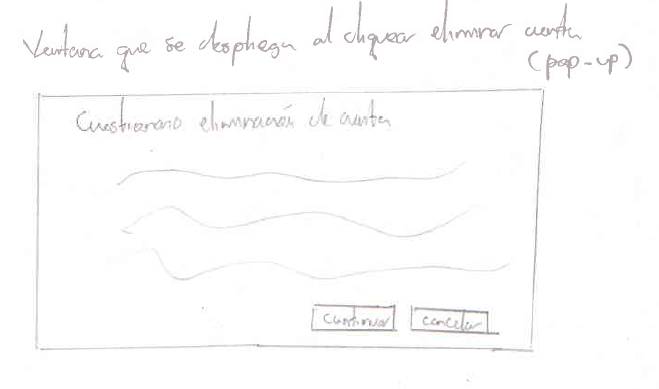 Ventana que se despliega al cliquear eliminar cuenta
(pop-up)
Cuestionario eliminación de cuenta
continuar
cancelar